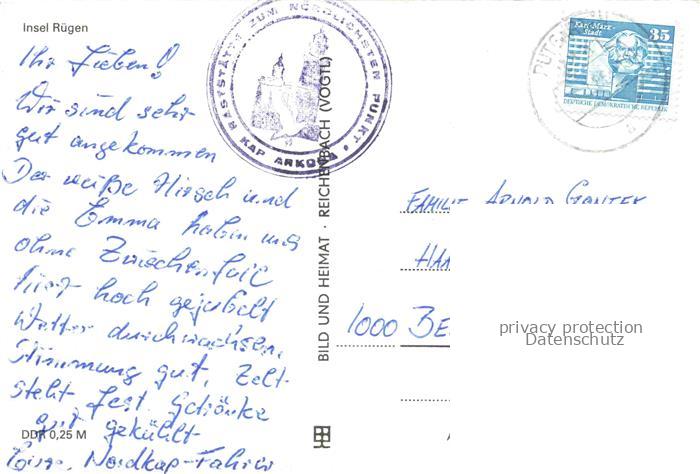 Insel Rügen
Ihr Lieben!
Wir sind sehr
gut angekommen
Der weiße Hirsch und
die Emma haben uns
ohne Zwischenfall
hier hoch gejubelt
Wetter durchwachsen,
Stimmung gut, Zelt
steht fest. Getränke
gut gekühlt
DDR 0,25 M
Eure Nordkap-Fahrer
RASTSTÄTTE ZUM NÖRDLICHSTEN PUNKT •
KAP ARKONA
BILD UND HEIMAT · REICHENBACH (VOGTL)
Karl-Marx-
Stadt
35
DEUTSCHE DEMOKRATISCHE REPUBLIK
PUTG
FAMILIE ARNOLD
1000 BE
privacy protection
Datenschutz